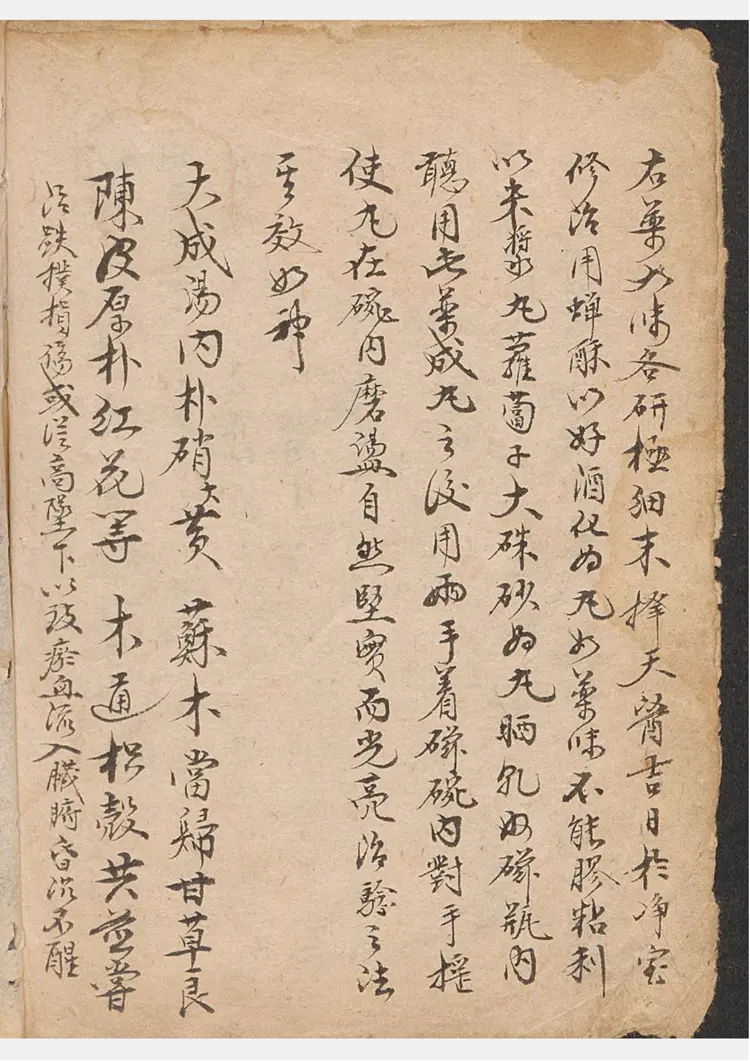 右藥六味各研極細末擇天醫吉日於净室
修治用蟬酥以好酒化为丸如藥味不能膠粘利
以米漿丸蘿蔔子大硃砂为丸晒乹奴磁瓶内
聽用此藥成丸之後用兩手着磁碗内對手摇
使丸在碗内磨盪自然堅實而光亮治驗之法
其效如神
大成湯内朴硝大黄 蘇木當歸甘草良
陳皮厚朴紅花等 木通枳殼共益嘗
治跌撲損傷或從高墜下以致瘀血流入臟腑昏沉不醒